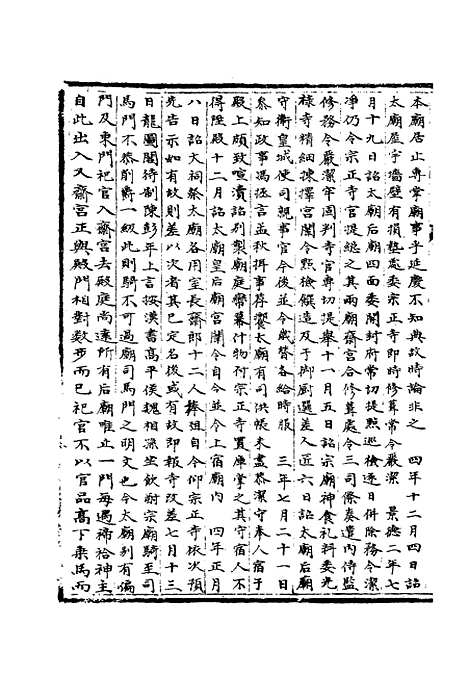 本廟居止專掌廟事乎延慶不知典故時論非之　四年十二月四日詔
太廟屋宇墻壁有損墊處委宗正寺即時修葺常令嚴潔　景德二年七
月十九日詔太廟后廟四面委開封府常切提㸃巡檢逐日併除務令潔
淨仍令宗正寺官提總之其兩廟齋宮合修葺處令三司條奏遣内侍監
修務令嚴潔牢固判寺官專切提舉十一月五日詔宗廟神食禮料委光
祿寺精細揀擇宮闈令㸃檢饌造及于御厨選差入匠六日詔太廟后廟
守衛皇城使司親事官今後並令歲替各給時服　三年七月二十一日
參知政事馮拯言孟秋攝事荐饗太廟有司洪帳未盡恭潔守奉人宿于
殿上頗致喧瀆詔别製廟庭帟幕什物付宗正寺置庫掌之其守宿人不
得陞殿十二月詔太廟皇后廟宮闈令自今並令上宿廟内　四年正月
八日詔大祠祭太廟各用室長齋郎十二人捧俎自今仰宗正寺依次預
先告示如有故則差以次者其已定名後或有故即報寺改差七月十三
日龍圖閣待制陳彭年上言按漢書高平侯魏相孫坐飲酎宗廟騎至司
馬門不恭削爵一級此則騎不可過廟司馬門之明文也今太廟别有偏
門及東門祀官入齋宮去殿庭尚遠所有后廟唯止一門每遇禘祫神主
自此出入又齋宮正與殿門相對數步而已祀官不以官品高下乗馬而